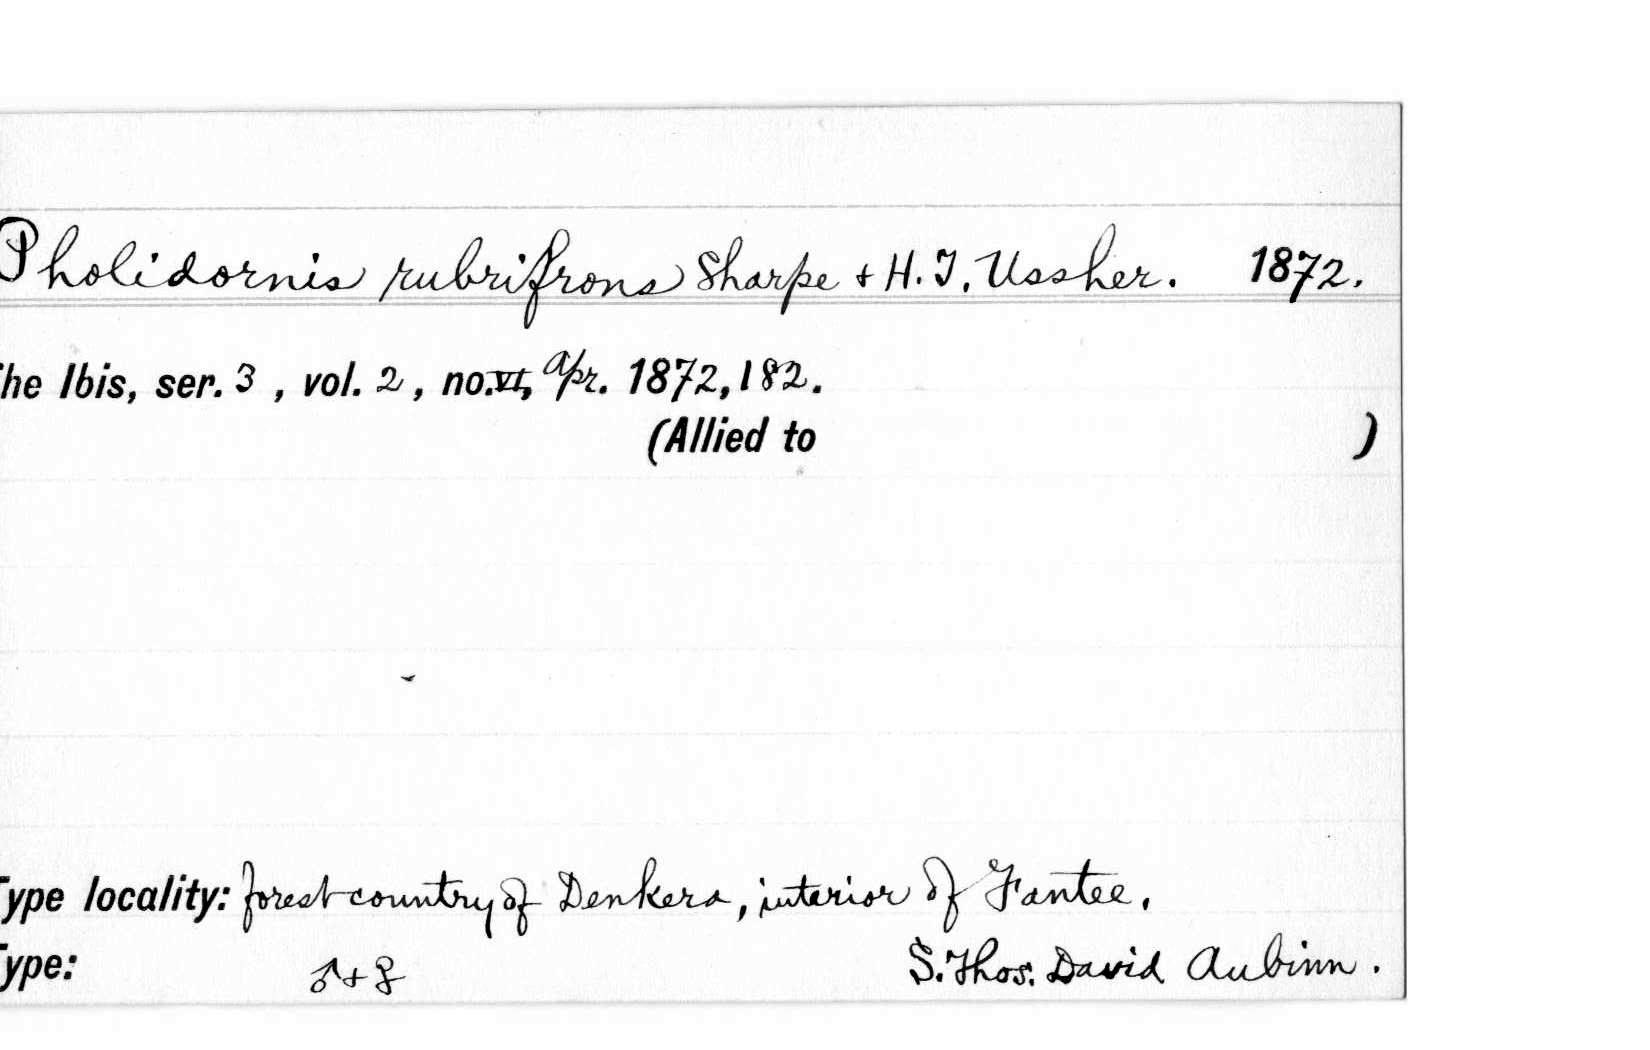 Pholidornis rubrifrons Sharpe + H.T. Ussher. 1872.
he Ibis, ser. 3, vol. 2, no. VI, Apr. 1872, 182.
(Allied to )
Type locality: forest country of Denkera, interior of Fantee.
Type: ♂ + ♀ S. Thos. David Aubinn.